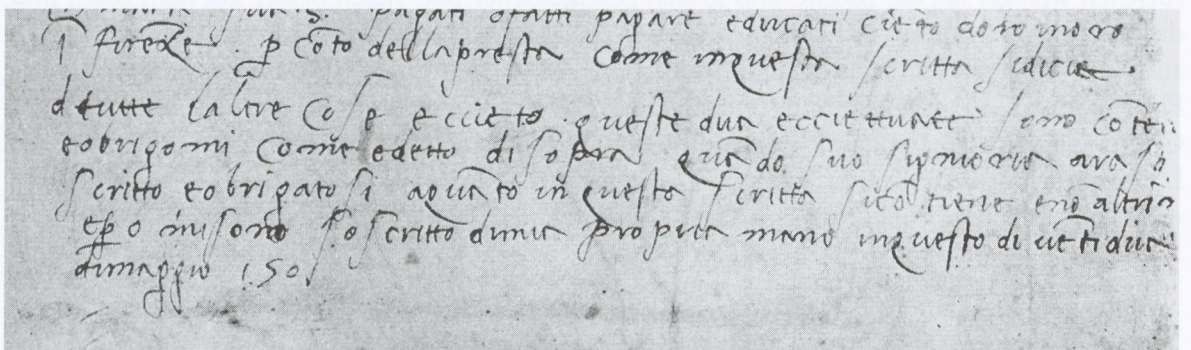 pagati o fatti pagare e ducati ciēto doro i noro
ī firēze . p cōto della presta come in questa scritta si dicie
d tutte laltre cose eccieto queste dua ecciettuate sono cōten
e obrigomi come e detto di sopra quādo suo signioria ara so
scritto e obrigatosi aquāto in questa scritta si cōtiene e nō altrim
e p o mi sono soscritto di mia propria mano in questo di vētidua
di maggio 1501